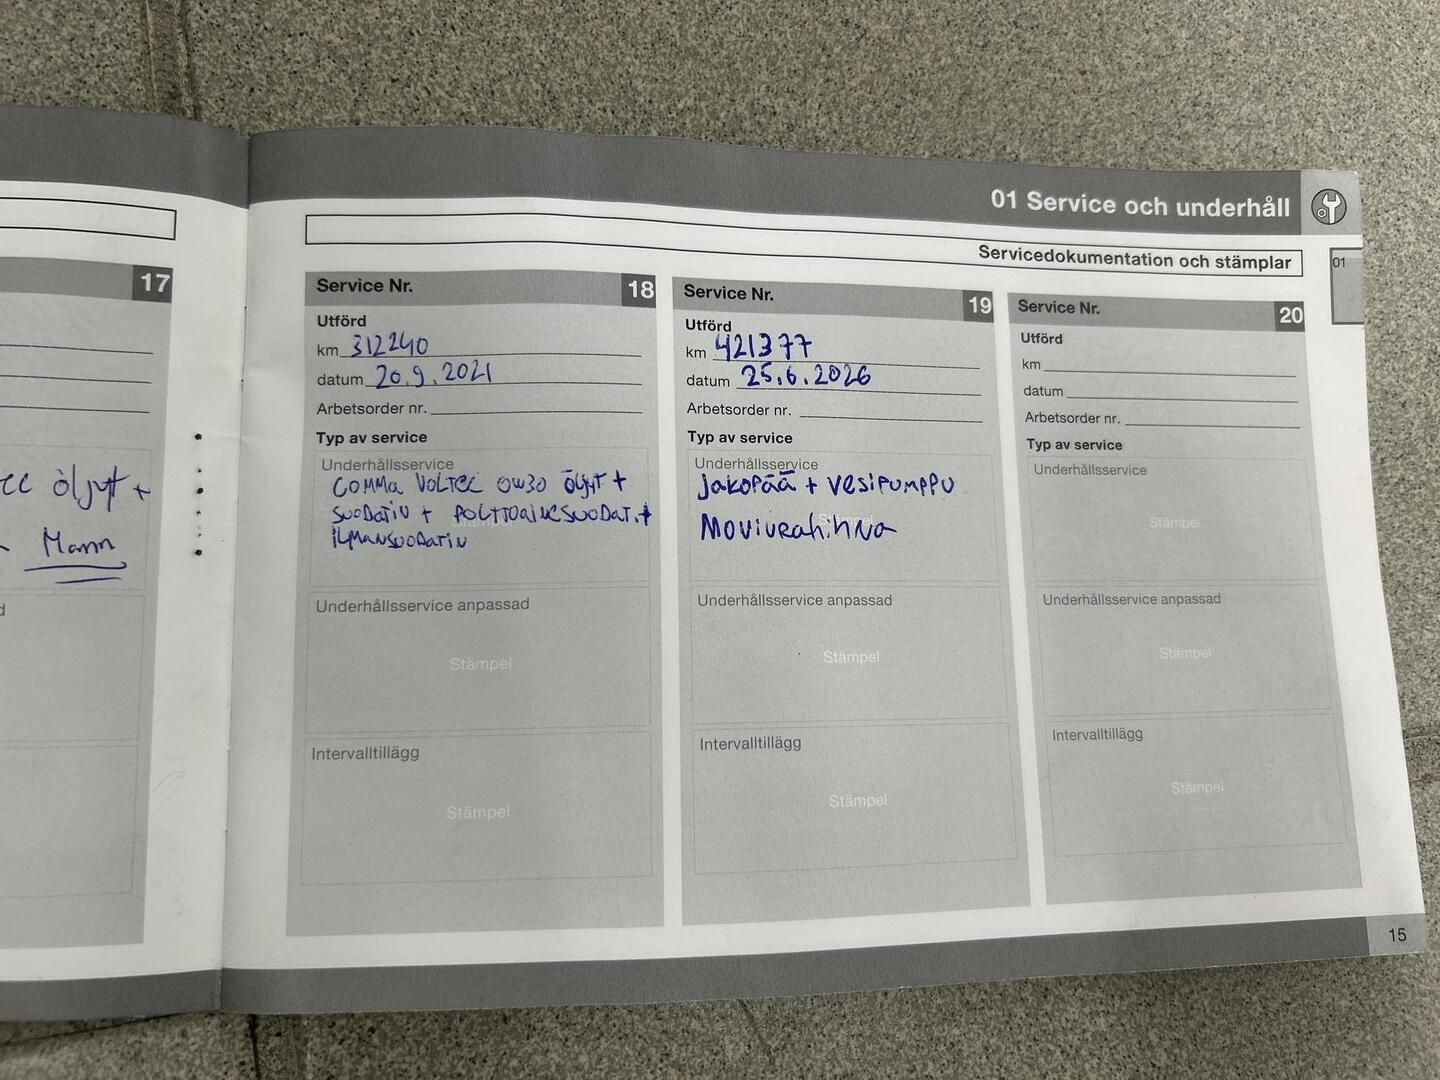 01 Service och underhåll
Servicedokumentation och stämplar
01
17
öljyt +
Mann
Service Nr. 18
Utförd
km 312240
datum 20.9.2021
Arbetsorder nr.
Typ av service
Underhållsservice
COMMA VOLTEC 0W30 öljyt +
SUODATIN + POLTTOAINESUODAT. +
iLMANSUODATIN
Underhållsservice anpassad
Stämpel
Intervalltillägg
Stämpel
Service Nr. 19
Utförd
km 421377
datum 25.6.2026
Arbetsorder nr.
Typ av service
Underhållsservice
Jakopää + vesipumppu
Moniurahihna
Underhållsservice anpassad
Stämpel
Intervalltillägg
Stämpel
Service Nr. 20
Utförd
km
datum
Arbetsorder nr.
Typ av service
Underhållsservice
Stämpel
Underhållsservice anpassad
Stämpel
Intervalltillägg
Stämpel
15